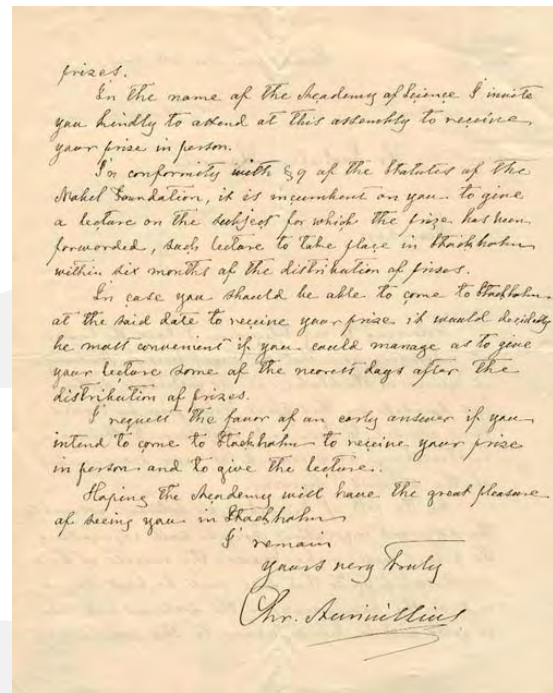 prizes.
In the name of the Academy of Science I invite
you kindly to attend at this assembly to receive
your prize in person.
In conformity with § 9 of the Statutes of the
Nobel Foundation, it is incumbent on you to give
a lecture on the subject for which the prize has been
forwarded, such lecture to take place in Stockholm
within six months of the distribution of prizes.
In case you should be able to come to Stockholm
at the said date to receive your prize it would decidedly
be most convenient if you could manage as to give
your lecture some of the nearest days after the
distribution of prizes.
I request the favor of an early answer if you
intend to come to Stockholm to receive your prize
in person and to give the lecture.
Hoping the Academy will have the great pleasure
of seeing you in Stockholm
I remain
yours very truly
Chr. Aurivillius